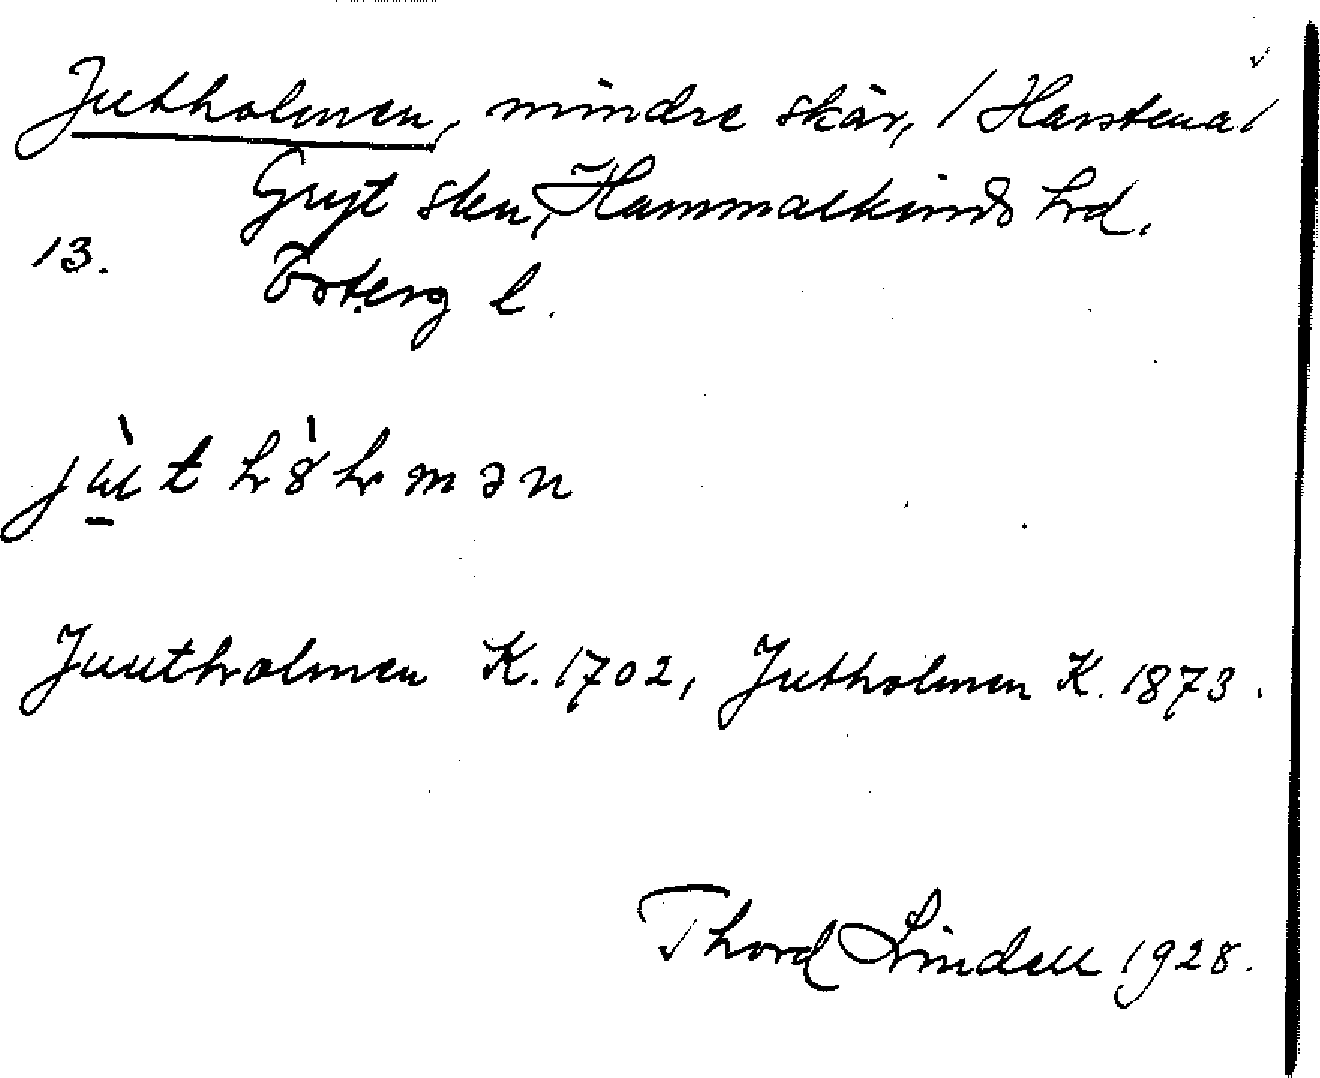 Jutholmen, mindre skär, / Harstena /
Gryt skn, Hammalkinds hrd.
13.
Österg l.
Juutholmen K. 1702, Jutholmen K. 1873.
Thord Lindell 1928.